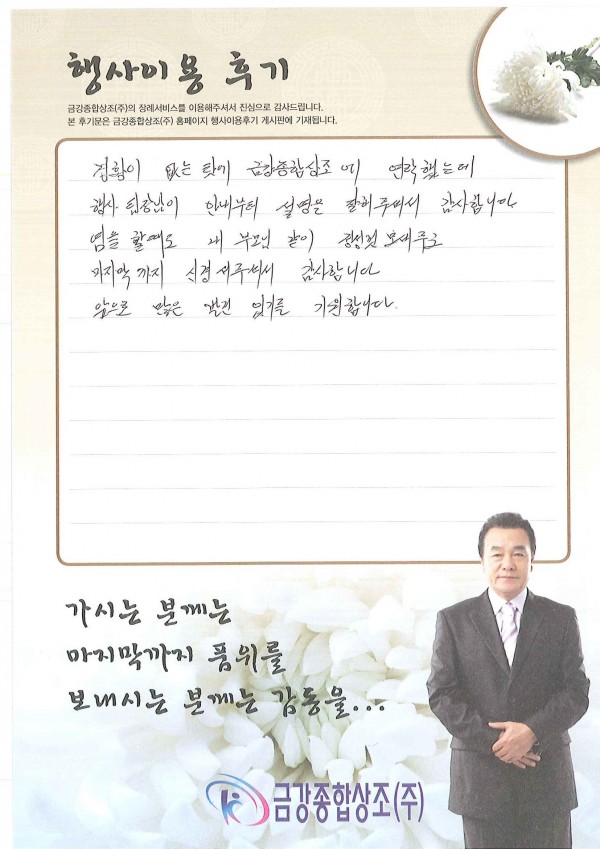 행사이용 후기
금강종합상조(주)의 장례서비스를 이용해주셔서 진심으로 감사드립니다.
본 후기문은 금강종합상조(주) 홈페이지 행사이용후기 게시판에 기재됩니다.
경황이 없는 탓에 금강종합상조에 연락했는데
행사 팀장님이 안내부터 설명을 잘해주셔서 감사합니다
염을 할때도 내 부모님 같이 정성껏 모셔주고
마지막까지 신경써주셔서 감사합니다
앞으로 많은 발전 있기를 기원합니다.
가시는 분께는
마지막까지 품위를
보내시는 분께는 감동을...
금강종합상조(주)